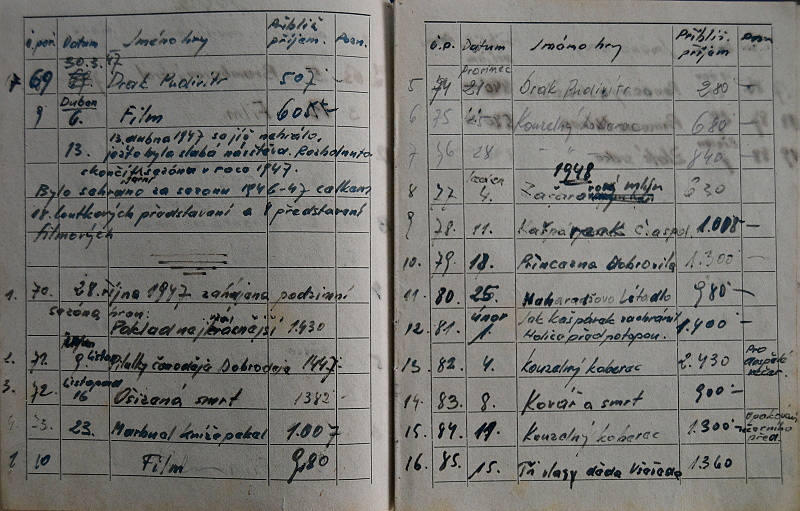 č. poř. Datum Jméno hry Přibliž. příjem. Pozn.
30.3.47
7 69 Drak Pudivítr 507
Duben
9 6. Film 605-
13. 13. dubna 1947 se již nehrálo,
ježto byla slabá návštěva. Rozhodnuto
skončiti jarní sezónu v roce 1947.
Bylo sehráno za sezonu 1946-47 celkem
loutkových představení a 9 představení
filmových
1. 70. 28. října 1947 zahájena podzimní
sezóna hrou:
Poklad nej 1430
2. 71. 9. listop. Pilulky čaroděje Dobroděje 1447-
Listopad
3. 72. 16 Ošizená smrt 1382-
4. 73. 23. Marbuel kníže pekel 1.007
1 10 Film 9,80
č.p. Datum Jméno hry Přibliž. příjem Pozn
Prosinec
5 74 21 Drak Pudivítr 280-
6 75 25 Kouzelný koberec 680-
7 76 28 " " 840-
1948
Leden
8 77 4. mlýn 630
9 78. 11. č. aspol. 1.008-
10. 79. 18. Princezna Dobromila 1.300-
11. 80. 25. Maharadžovo Létadlo 980-
únor
12. 81. 1. Jak Kašpárek zachránil
Holice před potopou. 1.400-
13. 82. 4. Kouzelný koberec 2.430 Pro dospělé večer.
14. 83. 8. Kovář a smrt 900-
15. 84. 11. Kouzelný koberec 1.300- Opakování večerního před.
16. 85. 15. Tři vlasy děda Vševěda 1.360